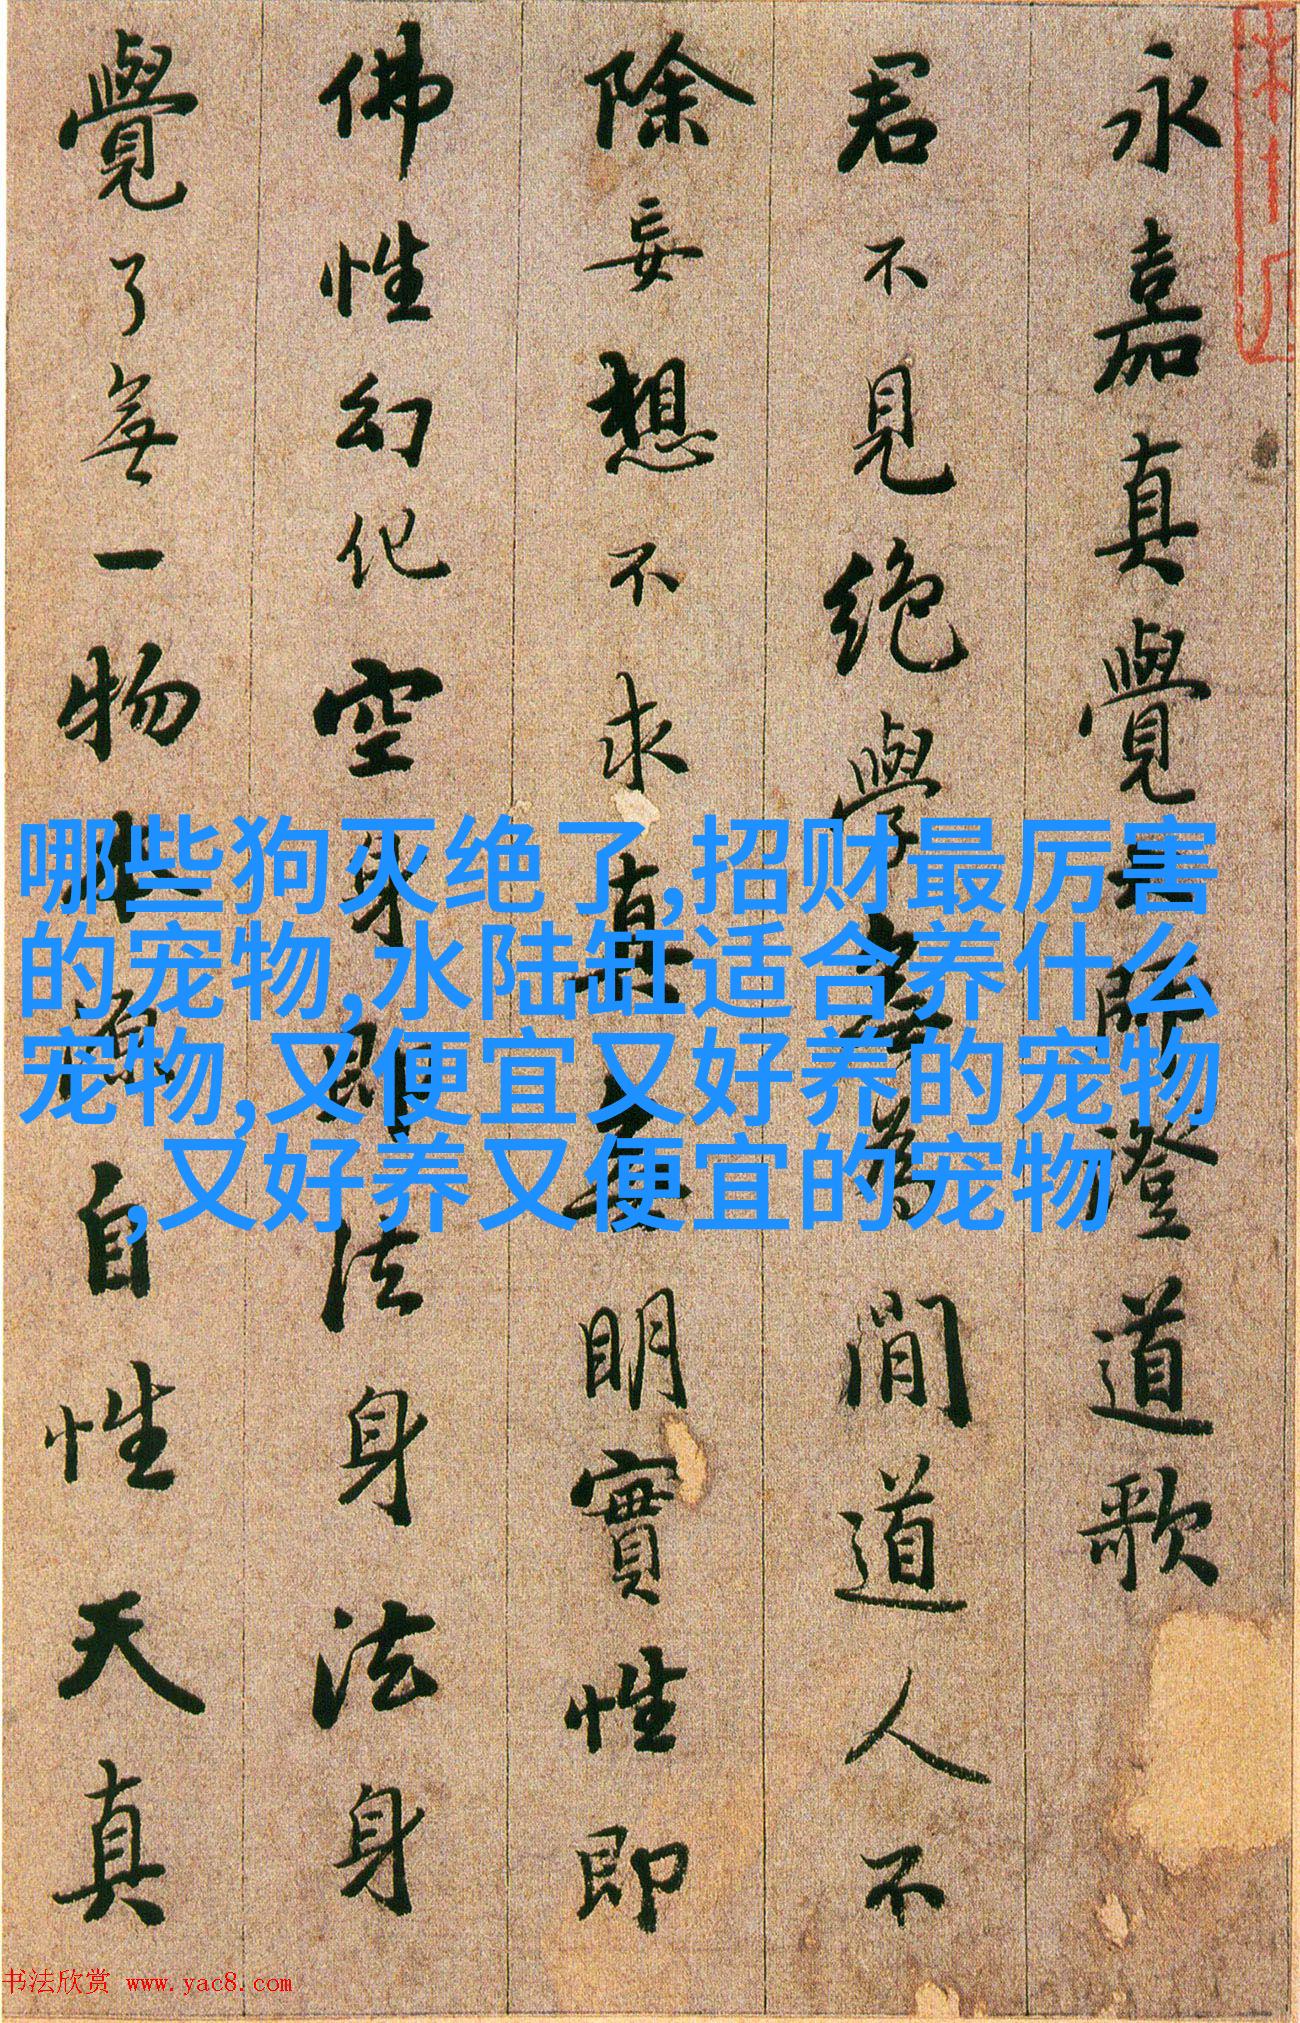 永嘉真覺大師澄道歌
君不見絕學無為閒道人不
除妄想不求真無明實性即
佛性幻化空身即法身法身
覺了無一物本源自性天真
哪些狗灭绝了,招财最厉害
的宠物,水陆缸适合养什么
宠物,又便宜又好养的宠物
,又好养又便宜的宠物
书法欣赏 www.yac8.com